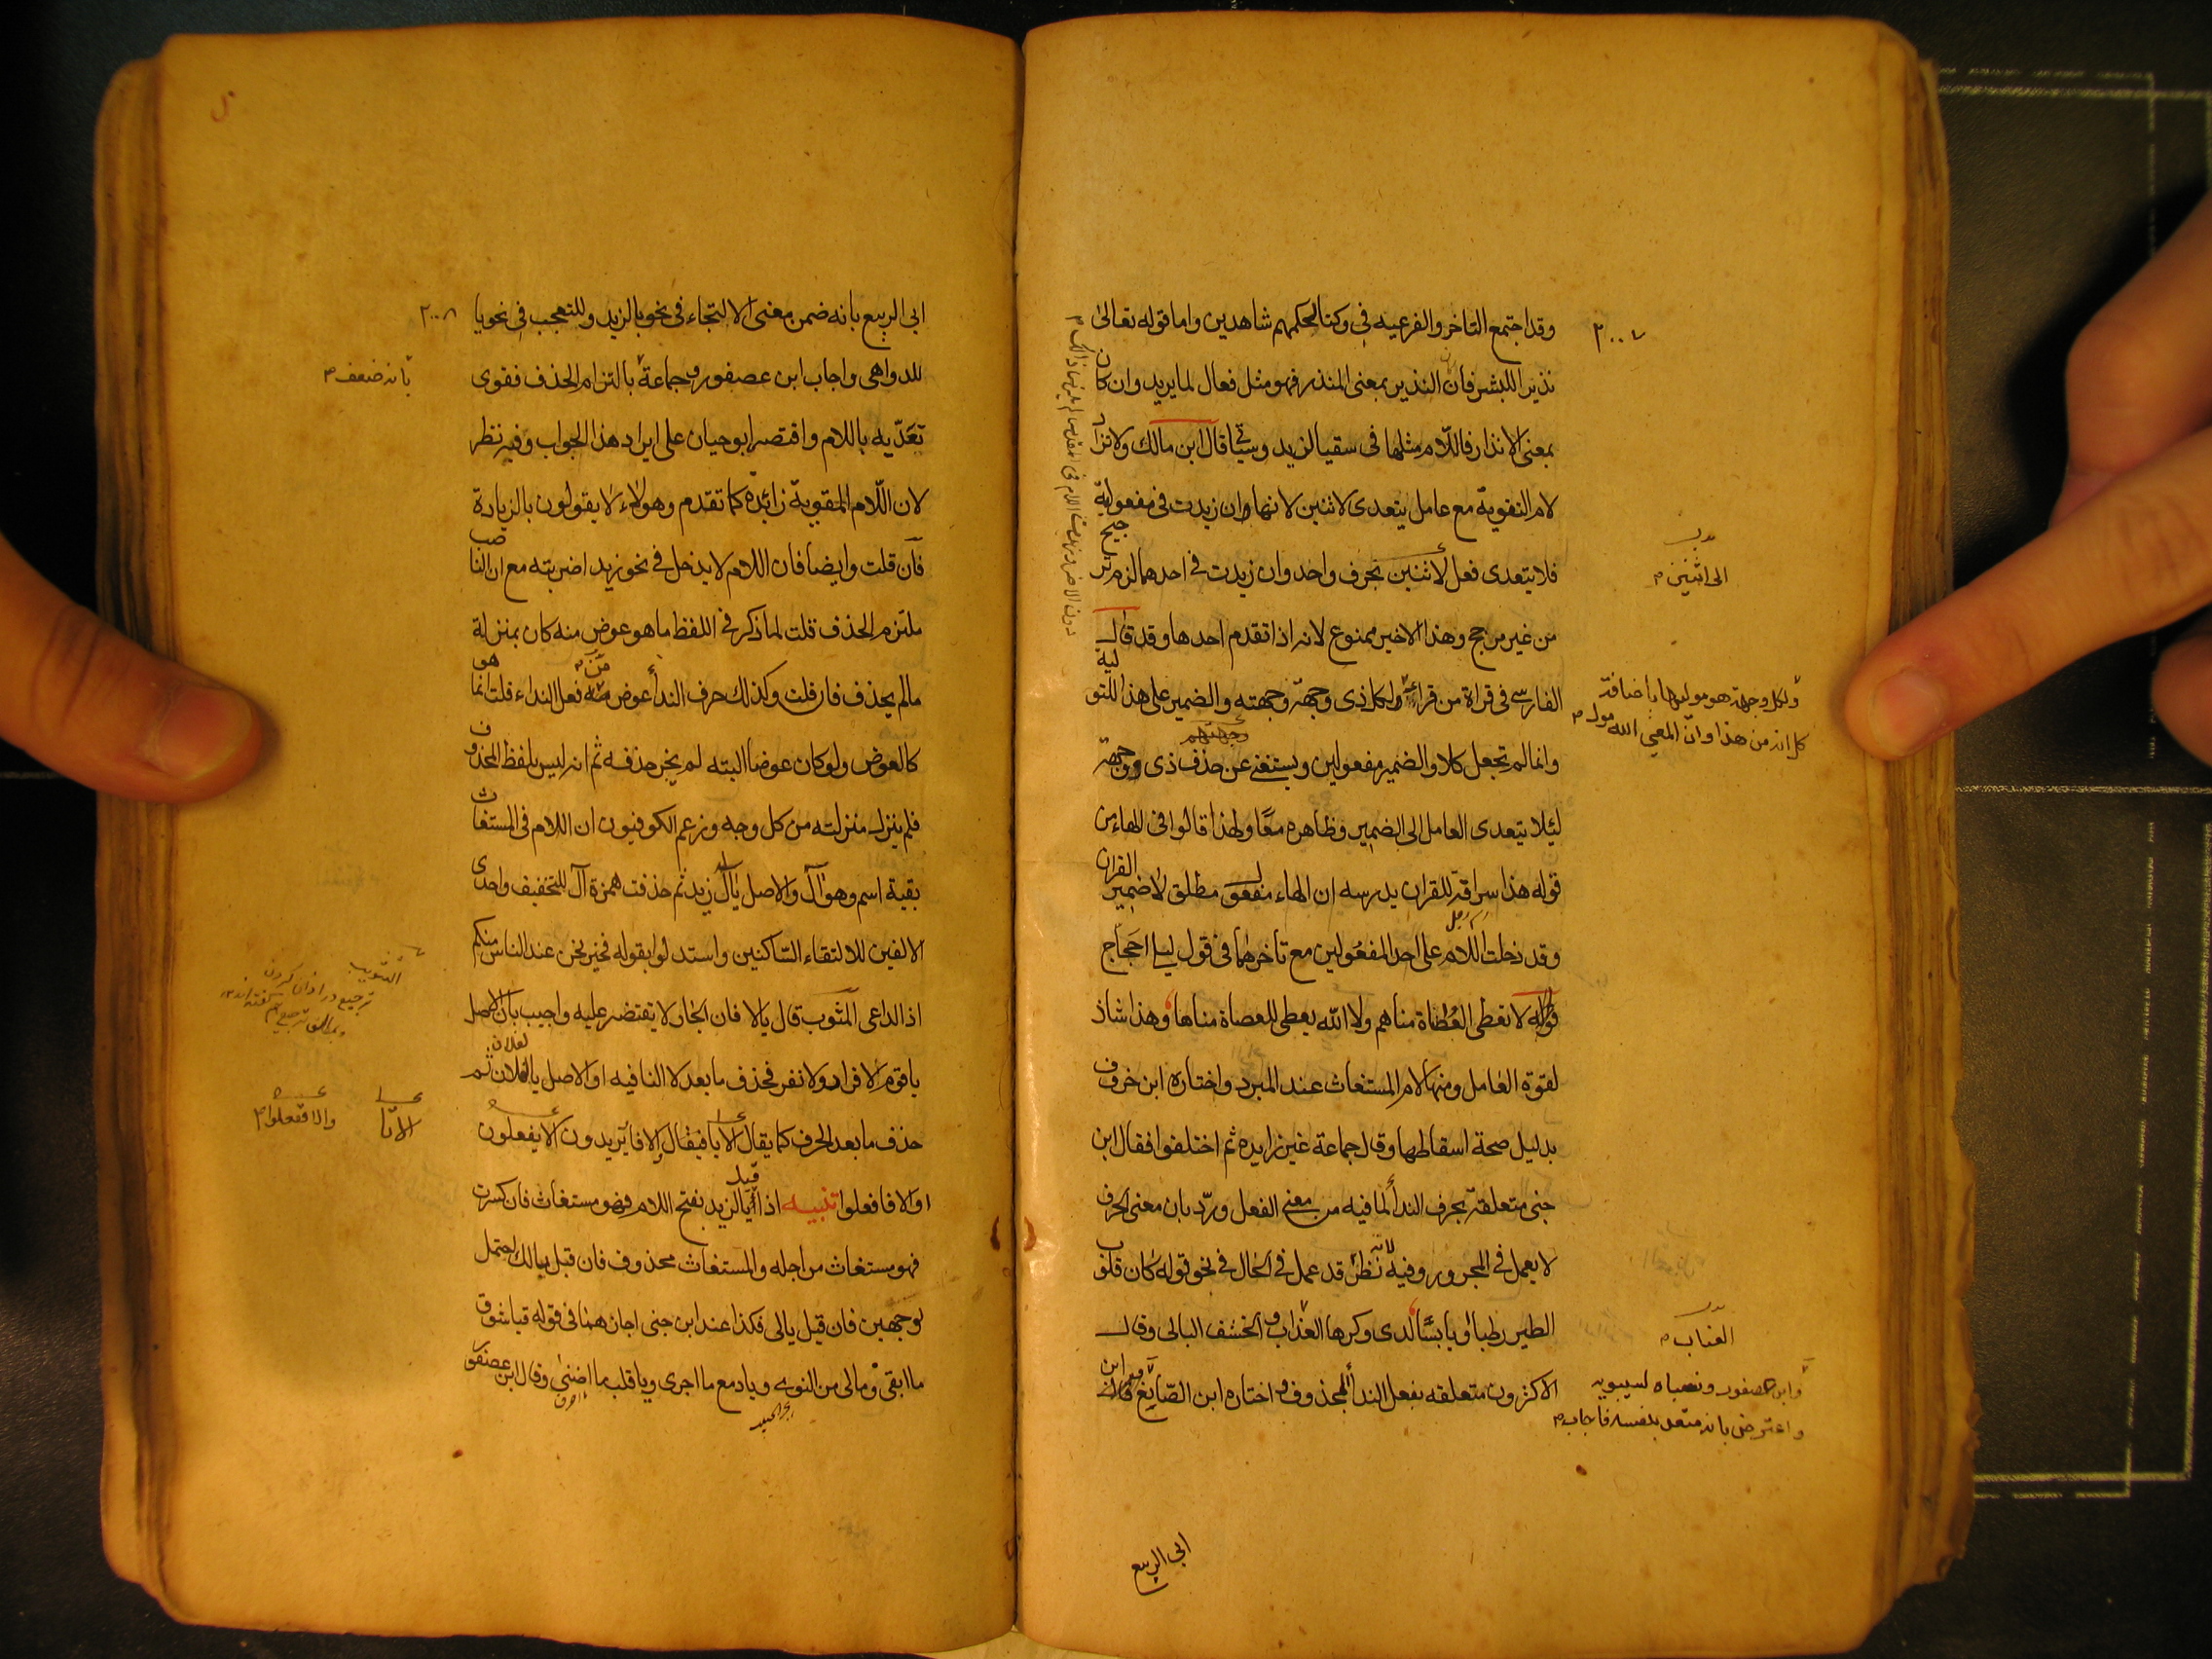 ٢٠٠٧
وقد اجتمع التاخر والفرعيه في وكنا لحكمهم شاهدين واما قوله تعالى
نذيرا للبشر فان النذير بمعنى المنذر فهو مثل فعال لما يريد وان كان
بمعنى الانذار فاللام مثلها فى سقيا لزيد وسياتى قال ابن مالك ولا تزاد
لام التقوية مع عامل يتعدى لاثنين لانها ان زيدت فى مفعوليه
فلا يتعدى فعل لاثنين بحرف واحد وان زيدت فى احدهما لزم ترجيح
من غير مرجح وهذا الاخير ممنوع لانه اذا تقدم احدها وقد قال
الفارسى فى قراة من قراء ولكل ذى وجهة وجهته والضمير على هذا للتولية
وانما لم تجعل كلا والضمير مفعولين ويستغنى عن حذف ذى وجهة
لئلا يتعدى العامل الى الضمير وظاهره معًا ولهذا قالوا فى الهاء من
قوله هذا سراقة للقران يدرسه ان الهاء مفعول مطلق لا ضمير القران
وقد دخلت اللام على احد المفعولين مع تاخرهما فى قول ليلى احجاج
لا تعطى العصاة مناهم ولا الله يعطى للعصاة مناها وهذا شاذ
لقوة العامل ومنها لام المستغاث عند المبرد واختاره ابن خروف
بدليل صحة اسقاطها وقال جماعة غير زايده ثم اختلفوا فقال ابن
جنى متعلقة بحرف الندا لما فيه من معنى الفعل ورد بان معنى الحرف
لا يعمل فى المجرور وفيه نظر لانه قد عمل فى الحال فى نحو قوله كان قلوب
الطير رطبا ويابسا لدى وكرها العناب والحشف البالى وقال
الاكثرون متعلقه بفعل الندا المحذوف واختاره ابن الصايغ
الى اثنين
ولكل وجهة هو موليها باضافة
كل انه من هذا وان المعنى الله مولى
العناب
وابن عصفور ونسباه لسيبويه
واعترض بانه متعد بنفسه فاجاب
ابى الربيع
٢٠٠٨
ابى الربيع بانه ضمن معنى الالتجاء فى نحو يا لزيد وللتعجب فى نحو يا
للدواهى واجاب ابن عصفور وجماعة بالتزام الحذف فقوى
تعديه باللام واقتصر ابو حيان على ايراد هذا الجواب وفيه نظر
لان اللام المقوية زائدة كما تقدم وهولاء لا يقولون بالزيادة
فان قلت وايضا فان اللام لا يدخل فى نحو زيد اضربته مع ان الناصب
ملتزم الحذف قلت لما ذكر فى اللفظ ما هو عوض منه كان بمنزلة
ما لم يحذف فان قلت وكذلك حرف الندا عوض من فعل النداء قلت انما هو
كالعوض ولو كان عوضا البته لم يجز حذفه ثم انه ليس بلفظ المحذوف
فلم ينزل منزلته من كل وجه وزعم الكوفيون ان اللام فى المستغاث
بقية اسم وهو آل والاصل يا آل زيد ثم حذفت همزة آل للتخفيف واحدى
الالفين لالتقاء الساكنين واستدلوا بقوله فخير نحن عند الناس منكم
اذا الداعى المثوب قال يالا فان الجار لا يقتصر عليه واجيب بان الاصل
يا قوم لا فرار ولا نفر فحذف ما بعد لا النافيه او الاصل يا لفلان ثم
حذف ما بعد الحرف كما يقال الا تا فيقال الا فا يريدون الا تفعلون
او الا فافعلوا تنبيه اذا قيل يا لزيد بفتح اللام فهو مستغاث فان كسرت
فهو مستغاث من اجله والمستغاث محذوف فان قيل يا لك احتمل
لوجهين فان قيل يا لى فكذا عند ابن جنى اجازهما فى قوله فيا شوق
ما ابقى ومالى من النوى ويا دمع ما اجرى ويا قلب ما اضنى وقال ابن عصفور
بانه ضعف
التثويب
ترجيع در اذان كردن
الا تا
والا فافعلوا